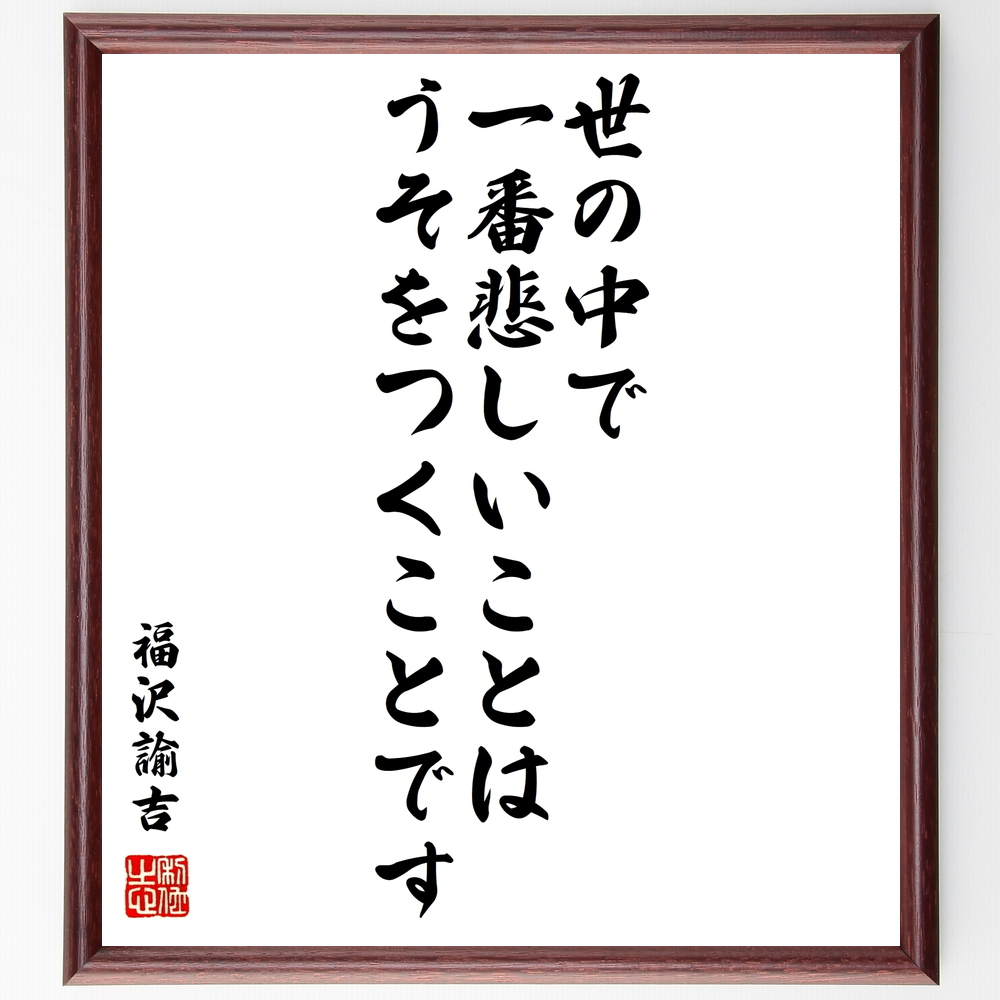 世の中で
一番悲しいことは
うそをつくことです
福沢諭吉